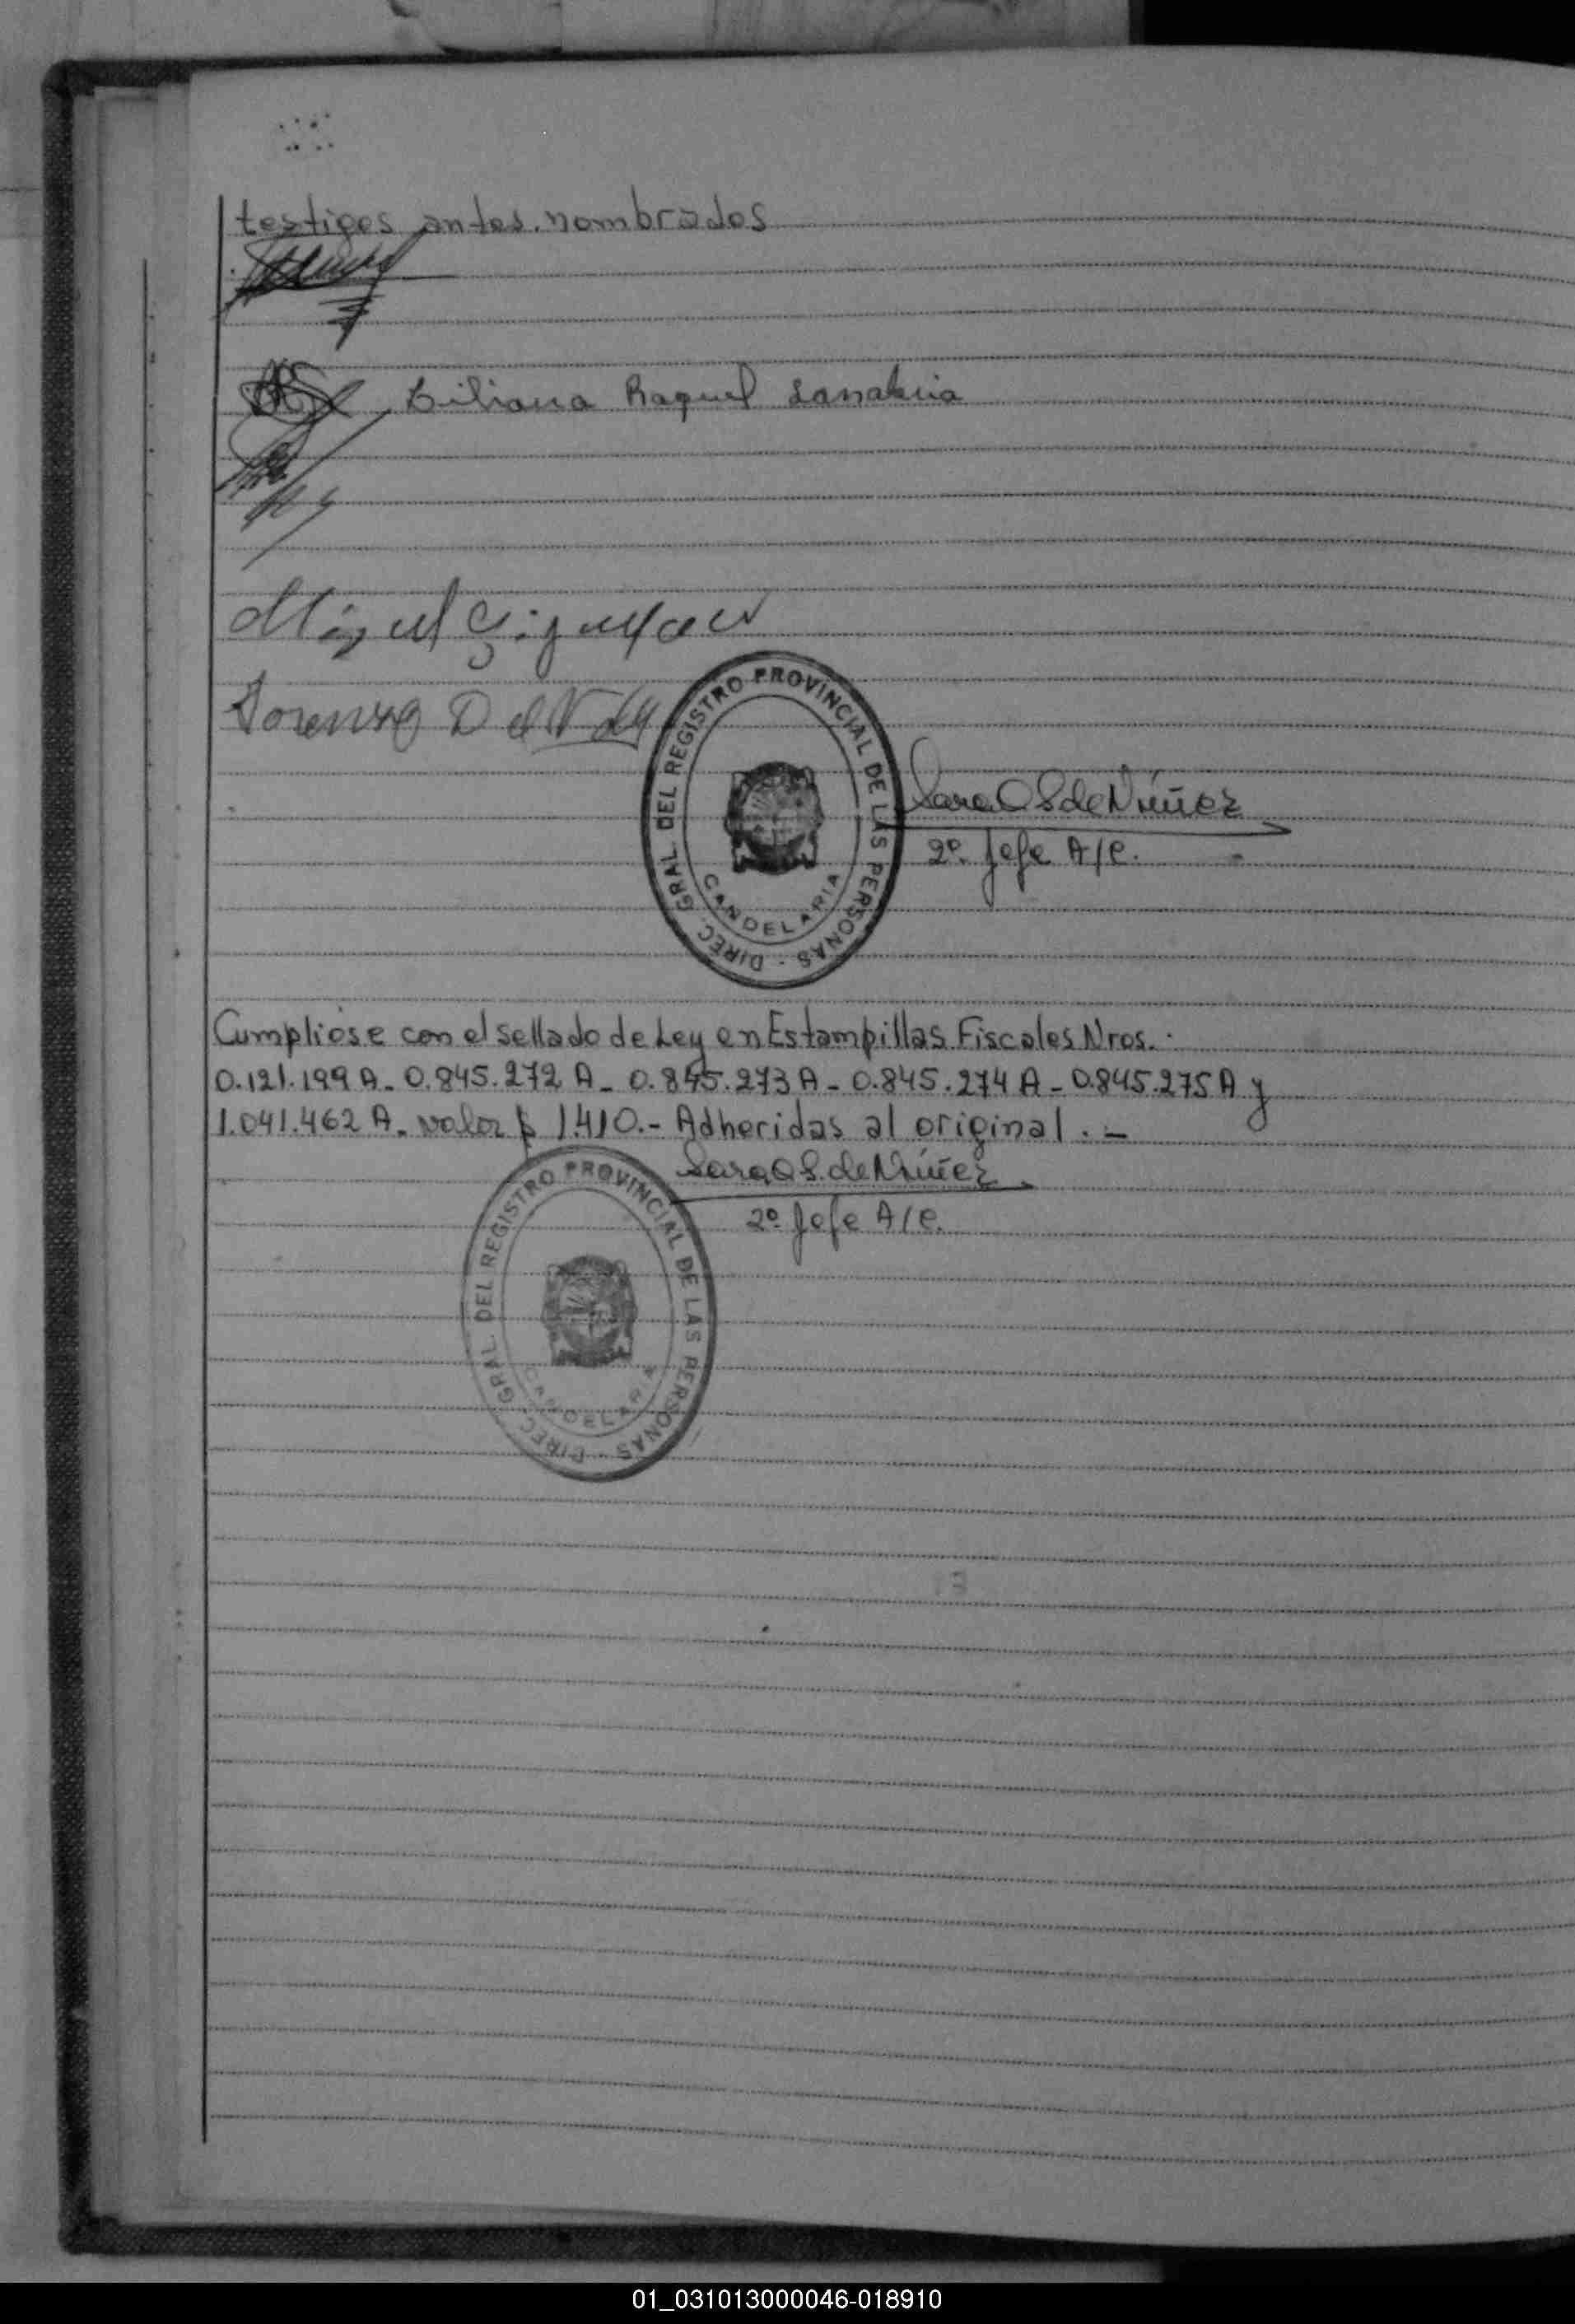 testigos antes nombrados
Liliana Raquel Sanabria
Miguel
Lorenzo Del
DIREC. GRAL DEL REGISTRO PROVINCIAL DE LAS PERSONAS -
CANDELARIA
Sara Q S de Núñez
2º Jefe A/C.
Cumplióse con el sellado de Ley en Estampillas Fiscales Nros.:
0.121.199 A - 0.845.272 A - 0.845.273 A - 0.845.274 A - 0.845.275 A y
1.041.462 A. valor $ 1.410.- Adheridas al original . -
Sara Q S. de Núñez
2º Jefe A/C.
DIREC. GRAL DEL REGISTRO PROVINCIAL DE LAS PERSONAS -
CANDELARIA
01_031013000046-018910